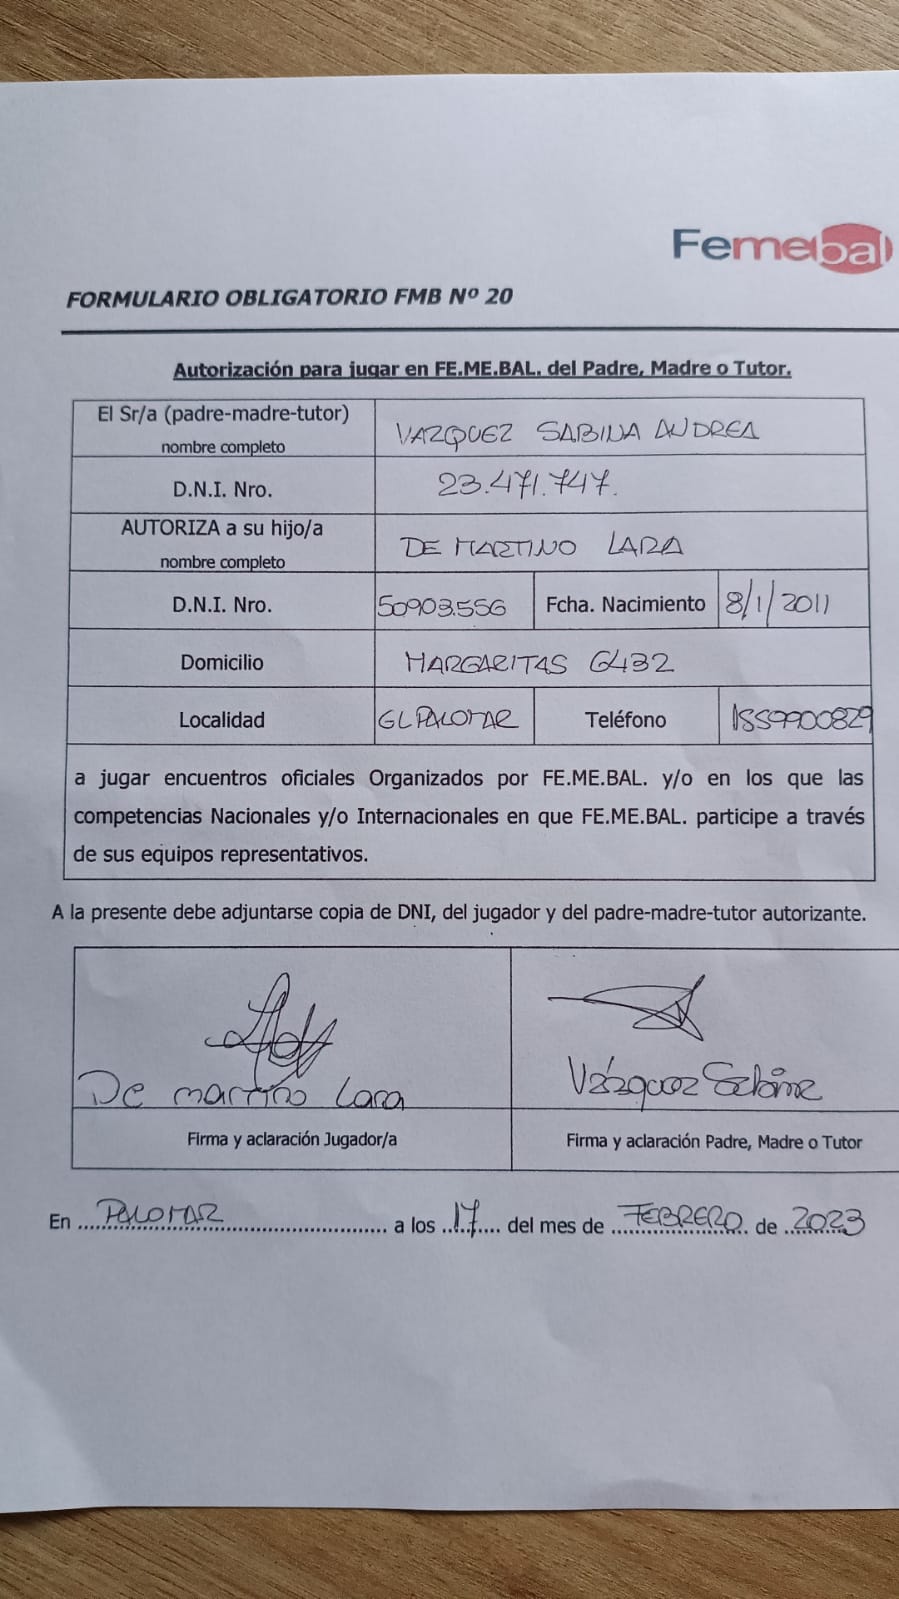 Femebal
FORMULARIO OBLIGATORIO FMB Nº 20
Autorización para jugar en FE.ME.BAL. del Padre, Madre o Tutor.
El Sr/a (padre-madre-tutor)
nombre completo
VAZQUEZ SABINA ANDREA
D.N.I. Nro.
23.471.747.
AUTORIZA a su hijo/a
nombre completo
DE MARTINO LARA
D.N.I. Nro.
50903.556
Fcha. Nacimiento
8/1/2011
Domicilio
MARGARITAS 6432
Localidad
EL PALOMAR
Teléfono
1559900829
a jugar encuentros oficiales Organizados por FE.ME.BAL. y/o en los que las
competencias Nacionales y/o Internacionales en que FE.ME.BAL. participe a través
de sus equipos representativos.
A la presente debe adjuntarse copia de DNI, del jugador y del padre-madre-tutor autorizante.
De martino Lara
Vázquez Sabina
Firma y aclaración Jugador/a
Firma y aclaración Padre, Madre o Tutor
En PALOMAR a los 17 del mes de FEBRERO de 2023